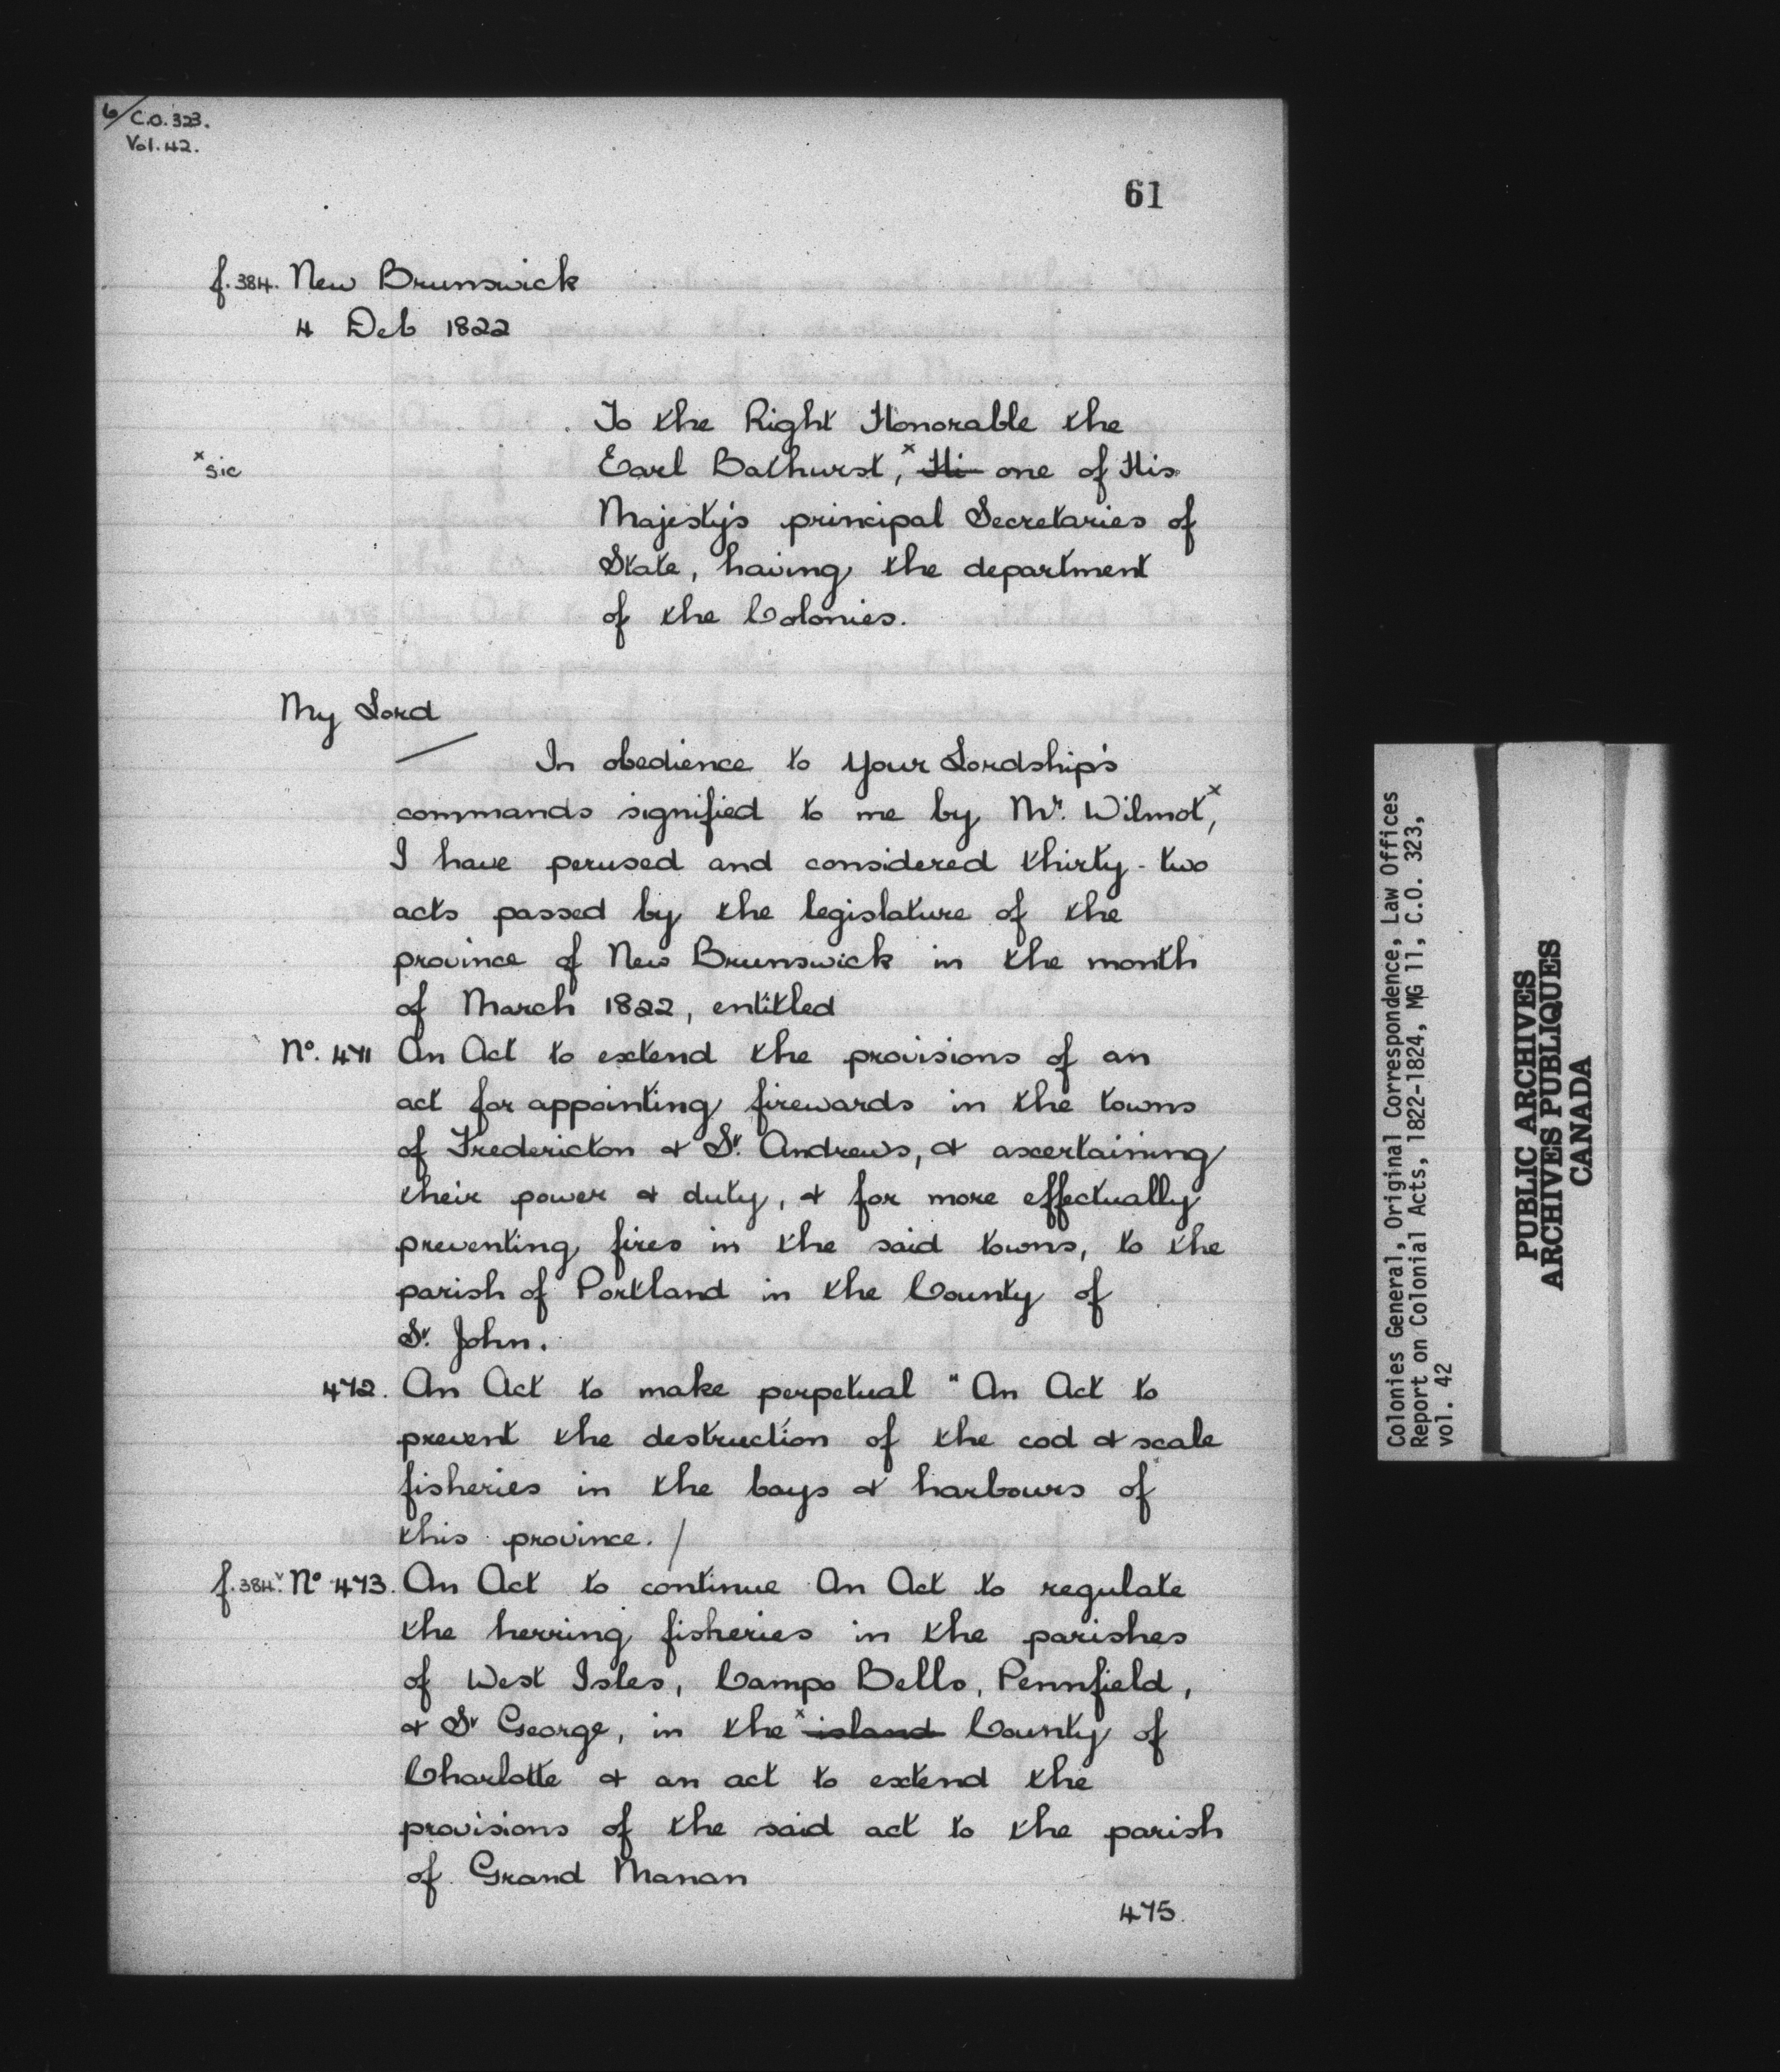 6/C.O. 323.
Vol. 42.
61
f. 384. New Brunswick
4 Deb 1822
To the Right Honorable the
x sic Earl Bathurst,x Hi one of His
Majesty's principal Secretaries of
State, having the department
of the Colonies.
My Lord
In obedience to your Lordship's
commands signified to me by Mr. Wilmot,x
I have perused and considered thirty-two
acts passed by the legislature of the
province of New Brunswick in the month
of March 1822, entitled
No. 471 An Act to extend the provisions of an
act for appointing firewards in the towns
of Fredericton & St. Andrews, & ascertaining
their power & duty, & for more effectually
preventing fires in the said towns, to the
parish of Portland in the County of
St. John.
472. An Act to make perpetual "An Act to
prevent the destruction of the cod & scale
fisheries in the bays & harbours of
this province. /
f. 384v. No 473. An Act to continue An Act to regulate
the herring fisheries in the parishes
of West Isles, Campo Bello, Pennfield,
& St George, in the x island County of
Charlotte & an act to extend the
provisions of the said act to the parish
of Grand Manan
475.
Colonies General, Original Correspondence, Law Offices
Report on Colonial Acts, 1822-1824, MG 11, C.O. 323,
vol. 42
PUBLIC ARCHIVES
ARCHIVES PUBLIQUES
CANADA